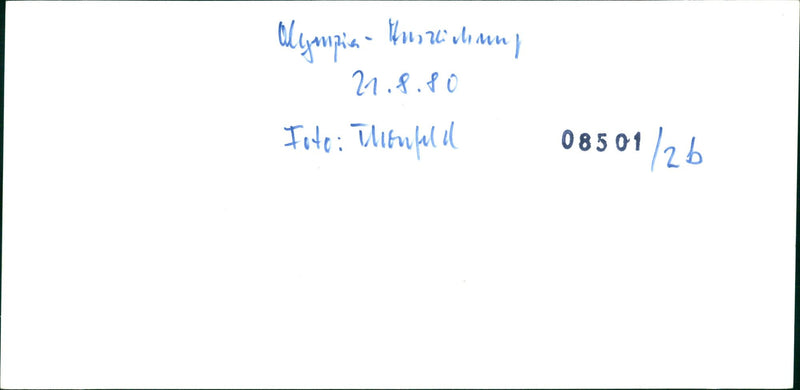 Olympia-Auszeichnung
21.8.80
Foto: Thonfeld 08501/2b